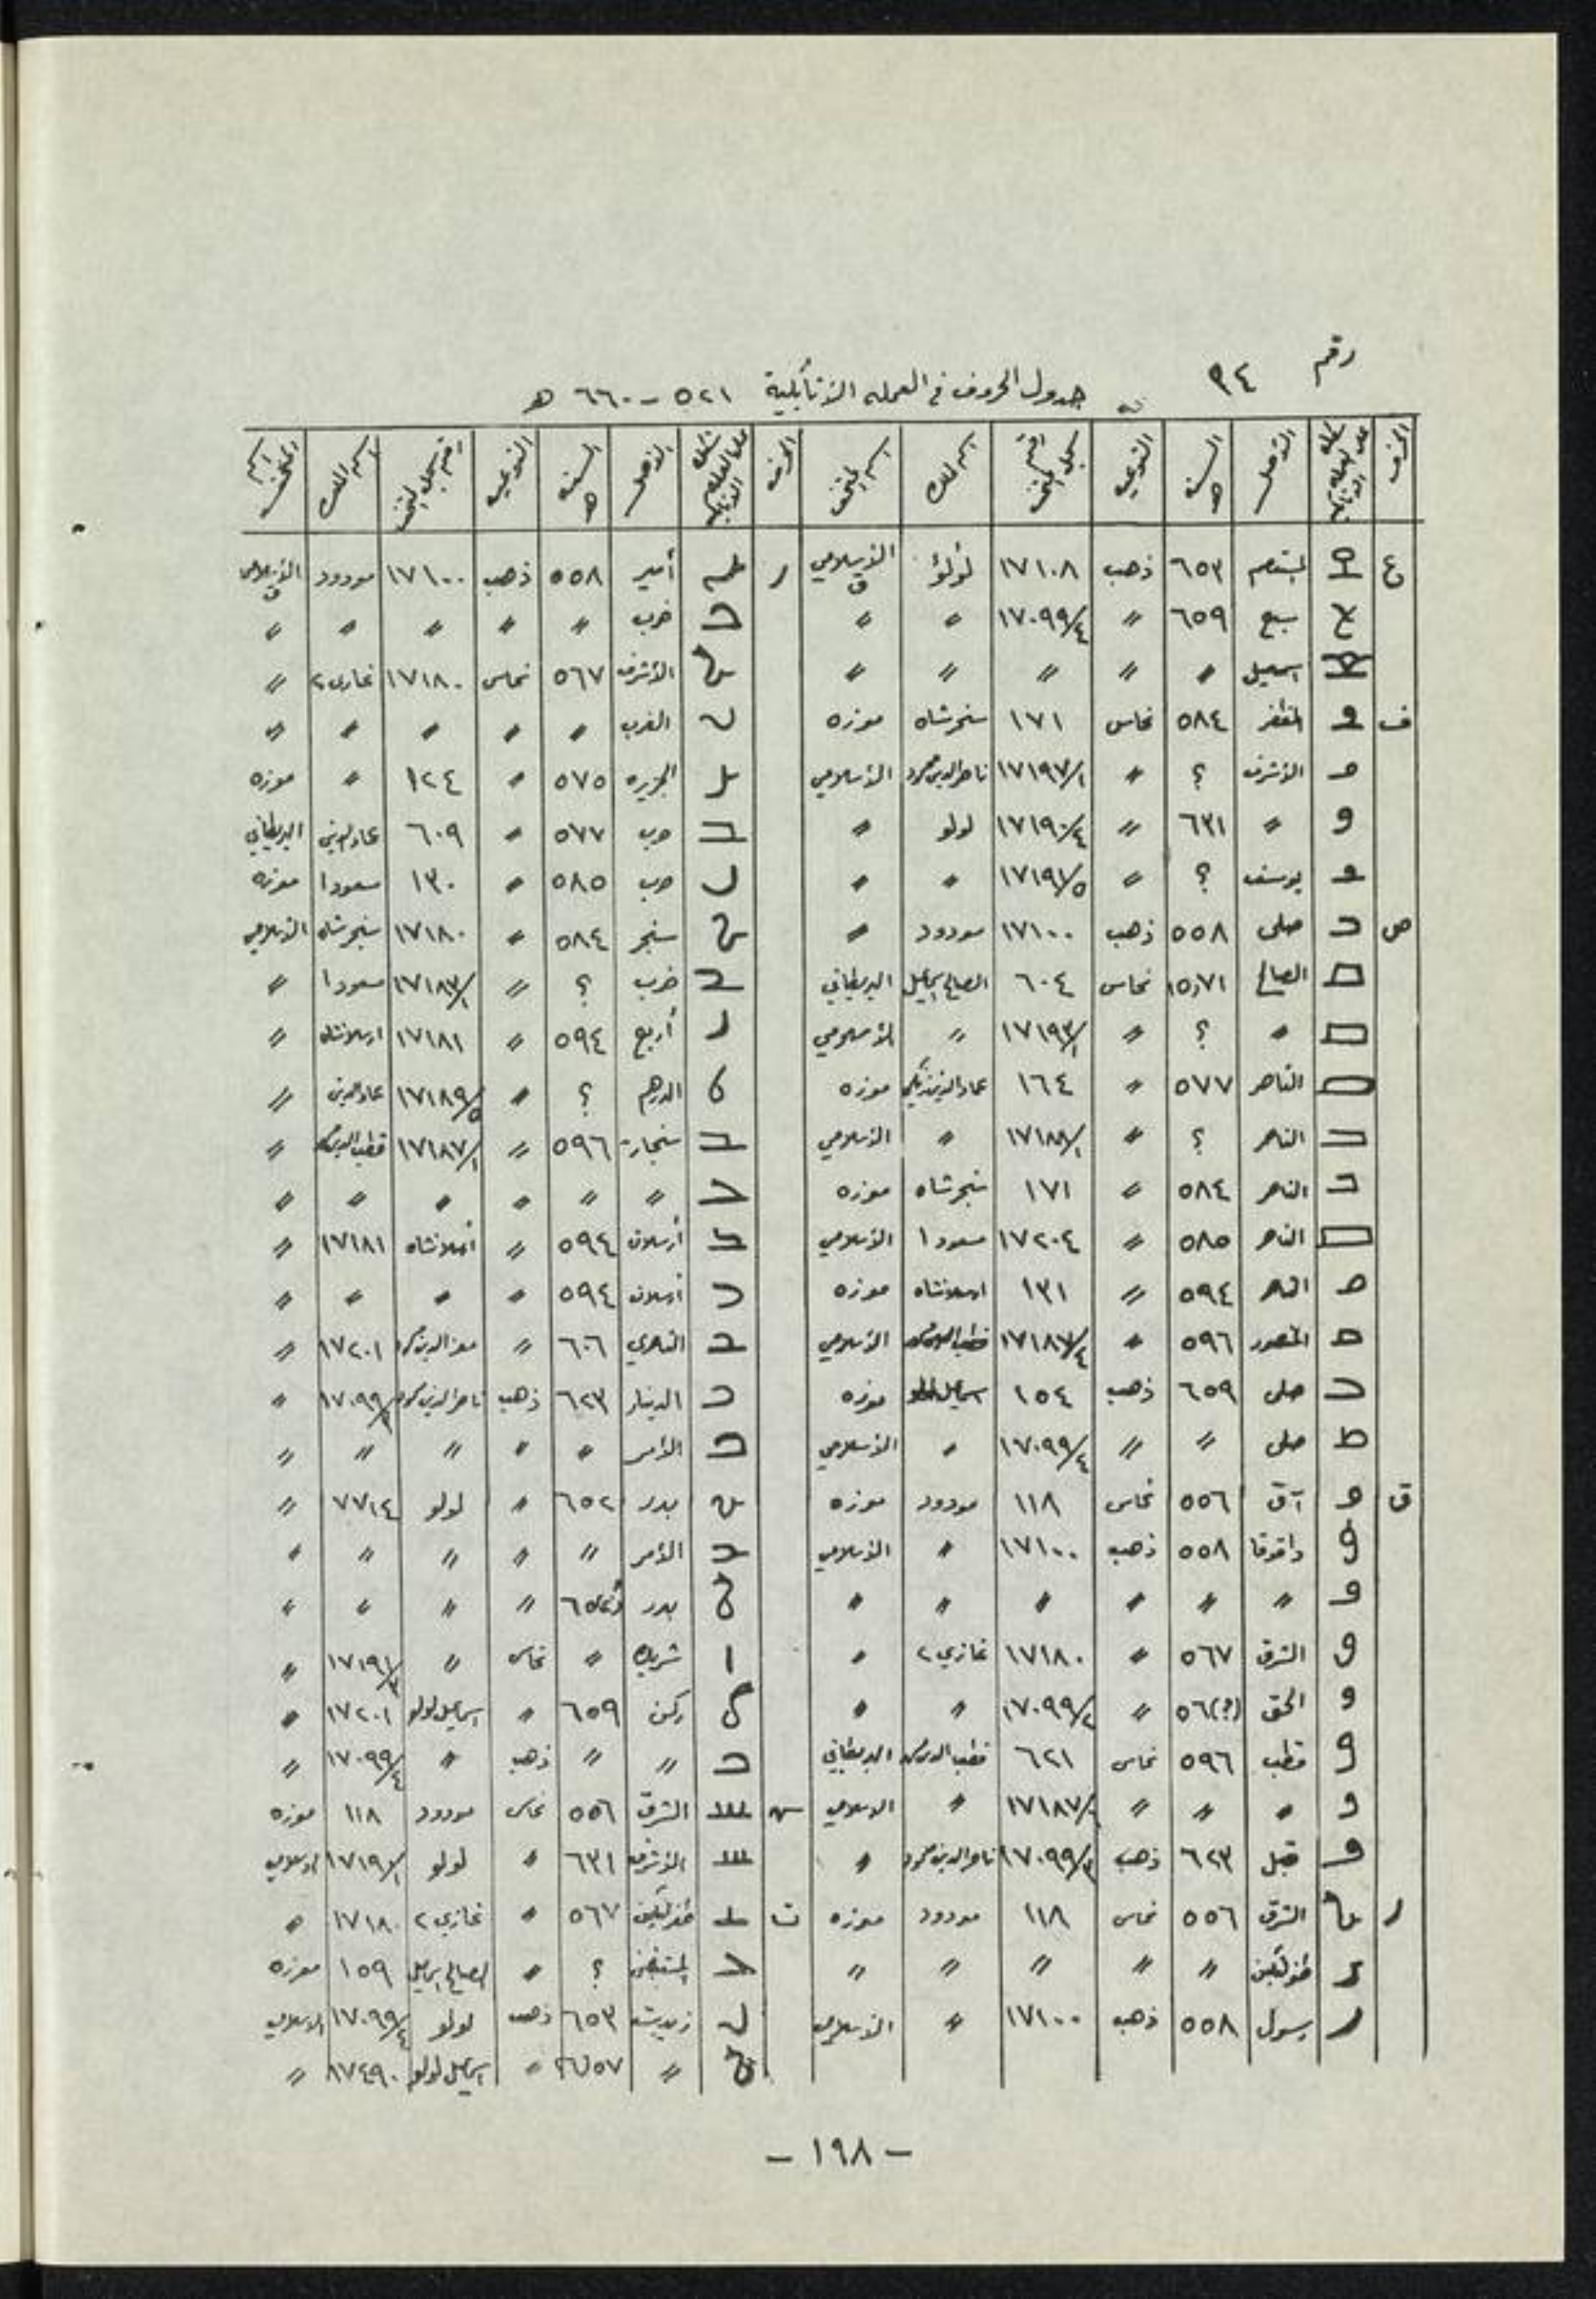 رقم ٩٤ جدول الحروف في العملة الأتابكية ٥٢١ - ٦٦٠ هـ
الحرف الأصل السنة هـ النوعية رقم سجل المتحف اسم الملك اسم المتحف الحرف الأصل السنة هـ النوعية رقم سجل المتحف اسم الملك اسم المتحف
ع المستعصم ٦٥٣ ذهب ١٧١٠٨ لؤلؤ الأسلامي ر أمير ٥٥٨ ذهب ١٧١٠٠ مودود الأسلامي
سبع ٦٥٩ 〃 ١٧٠٩٩/٤ 〃 〃 ضرب 〃 〃 〃 〃 〃
اسمعيل 〃 〃 〃 〃 〃 الأشرف ٥٦٧ نحاس ١٧١٨٠ غازي٢ 〃
ف المظفر ٥٨٤ نحاس ١٧١ سنجرشاه موزه الغرب 〃 〃 〃 〃 〃
الأشرف ؟ 〃 ١٧١٩٧/١ ناصرالدين محمود الأسلامي الجزيره ٥٧٥ 〃 ١٢٤ 〃 موزه
〃 ٦٣١ 〃 ١٧١٩٠/٤ لولو 〃 ضرب ٥٧٧ 〃 ٦٠٩ عمادالدين البريطاني
يوسف ؟ 〃 ١٧١٩١/٥ 〃 〃 ضرب ٥٨٥ 〃 ١٣٠ مسعود١ موزه
ص صلى ٥٥٨ ذهب ١٧١٠٠ مودود 〃 سنجر ٥٨٤ 〃 ١٧١٨٠ سنجرشاه الأسلامي
الصالح ٥٧١ نحاس ٦٠٤ الصالح اسماعيل البريطاني ضرب ؟ 〃 ١٧١٨٣/١ مسعود١ 〃
〃 ؟ 〃 ١٧١٩٣/١ 〃 الأسلامي أربع ٥٩٤ 〃 ١٧١٨١ ارسلانشاه 〃
الناصر ٥٧٧ 〃 ١٦٤ عمادالدين زنكي موزه الدرهم ؟ 〃 ١٧١٨٩/٥ عمادالدين 〃
الناصر ؟ 〃 ١٧١٨٨/١ 〃 الأسلامي سنجار ٥٩٦ 〃 ١٧١٨٧/١ قطب الدين 〃
الناصر ٥٨٤ 〃 ١٧١ سنجرشاه موزه 〃 〃 〃 〃 〃 〃
الناصر ٥٨٥ 〃 ١٧٢٠٤ مسعود١ الأسلامي أرسلان ٥٩٤ 〃 ارسلانشاه ١٧١٨١ 〃
الناصر ٥٩٤ 〃 ١٣١ ارسلانشاه موزه أرسلان ٥٩٤ 〃 〃 〃 〃
المنصور ٥٩٦ 〃 ١٧١٨٧/٤ قطب الدين محمد الأسلامي الناصري ٦٠٦ 〃 معزالدين محمود ١٧٢٠١ 〃
صلى ٦٥٩ ذهب ١٥٤ اسماعيل لولو موزه الدينار ٦٢٣ ذهب ناصرالدين محمود ١٧٠٩٩/٣ 〃
صلى 〃 〃 ١٧٠٩٩/٤ 〃 الأسلامي الأمر 〃 〃 〃 〃 〃
ق آق ٥٥٦ نحاس ١١٨ مودود موزه بدر ٦٥٢ 〃 لولو ٧٧١٤ 〃
داقوقا ٥٥٨ ذهب ١٧١٠٠ 〃 الأسلامي الأمر 〃 〃 〃 〃 〃
〃 〃 〃 〃 〃 〃 بدر 〃 〃 〃 〃
الشرق ٥٦٧ 〃 ١٧١٨٠ غازي٢ 〃 شريك 〃 نحاس 〃 ١٧١٩١/٣ 〃
الحق ٥٦(؟) 〃 ١٧٠٩٩/٢ 〃 〃 ركن ٦٥٩ 〃 اسماعيل لولو ١٧٢٠١ 〃
قطب ٥٩٦ نحاس ٦٢١ قطب الدين محمد البريطاني 〃 〃 ذهب 〃 ١٧٠٩٩/٤ 〃
〃 〃 〃 ١٧١٨٧/٩ 〃 الاسلامي س الشرق ٥٥٦ نحاس مودود ١١٨ موزه
قبل ٦٢٣ ذهب ١٧٠٩٩/٣ ناصرالدين محمود 〃 الأشرف ٦٣١ 〃 لولو ١٧١٩١/١ الاسلامي
ر الشرق ٥٥٦ نحاس ١١٨ مودود موزه ت طغرلتكين ٥٦٧ 〃 غازي٢ ١٧١٨٠ 〃
طغرلتكين 〃 〃 〃 〃 〃 المستضئ ؟ 〃 الصالح اسماعيل ١٥٩ موزه
رسول ٥٥٨ ذهب ١٧١٠٠ 〃 الأسلامي ٦٥٣ ذهب لولو ١٧٠٩٩/٤ الاسلامي
〃 〃 اسماعيل لولو ١٧٤٩٠ 〃
- ١٩٨ -